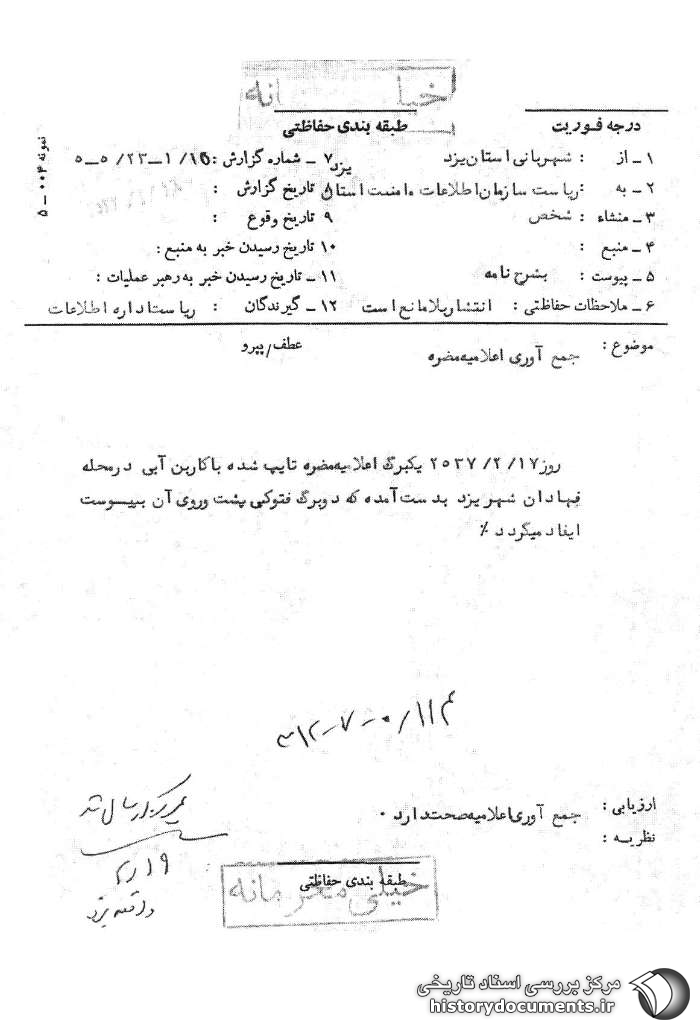 خیلی محرمانه
درجه فوریت
طبقه بندی حفاظتی
نمونه ۰۰۴ - ۵
۱ - از : شهربانی استان یزد
۷ - شماره گزارش : ۱۶/ ۱-۲۳/ ۵-۵
۲ - به : ریاست سازمان اطلاعات و امنیت استان یزد
۸ تاریخ گزارش :
۳ - منشاء : شخص
۹ تاریخ وقوع :
۴ - منبع :
۱۰ تاریخ رسیدن خبر به منبع :
۵ - پیوست : بشرح نامه
۱۱ - تاریخ رسیدن خبر به رهبر عملیات :
۶ - ملاحظات حفاظتی : انتشار بلامانع است
۱۲ - گیرندگان : ریاست اداره اطلاعات
موضوع : جمع آوری اعلامیه مضره
عطف/پیرو
روز ۱۷/ ۲/ ۲۵۳۷ یکبرگ اعلامیه مضره تایپ شده با کاربن آبی در محله
فهادان شهر یزد بدست آمده که دو برگ فتوکپی پشت و روی آن بپیوست
ایفاد میگردد ٪
ارزیابی : جمع آوری اعلامیه صحت دارد .
نظریه :
۲/۱۹
طبقه بندی حفاظتی
خیلی محرمانه
مرکز بررسی اسناد تاریخی
historydocuments.ir